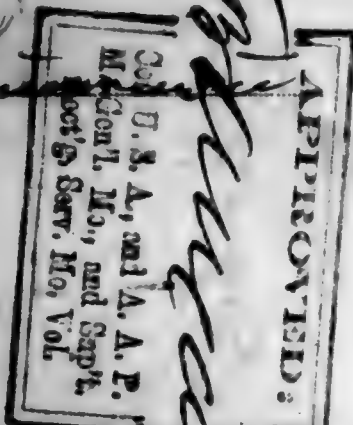 APPROVED:
Col. U. S. A., and A. A. P.
M. Gen'l. Mo., and Sup't.
Serv. Mo. Vol